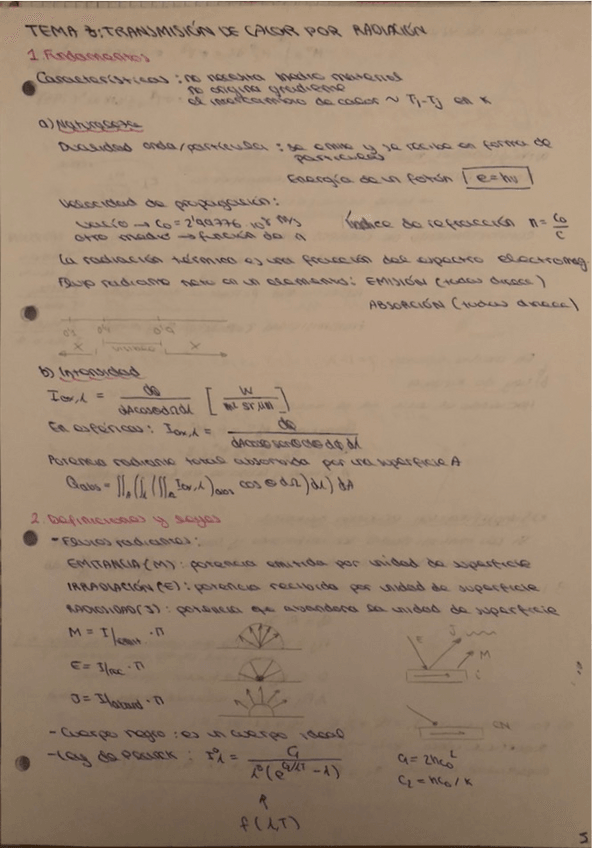 TEMA 7: TRANSMISIÓN DE CALOR POR RADIACIÓN
1. Fundamentos
Características: no necesita medio material
no origina gradiente
el intercambio de calor ~ Ti-Tj en K
a) Naturaleza
Dualidad onda/partícula: se emite y se recibe en forma de
partículas
Energía de un fotón e=hν
Velocidad de propagación:
vacío → C0 = 2'99776·10^8 m/s Índice de refracción n = C0/C
otro medio → función de n
La radiación térmica es una fracción del espectro electromag.
Flujo radiante neto en un elemento: EMISIÓN (todas direcc)
ABSORCIÓN (todas direcc)
x visible x
b) Intensidad
Iω,λ = dQ / dAcosθdΩdλ [W / m² sr μm]
En esféricas: Iω,λ = dQ / dAcosθsenθdθdΦdλ
Potencia radiante total absorbida por una superficie A
Qabs = ∫∫A(∫λ(∫∫Ω Iω,λ)abs cosθdΩ)dλ)dA
2. Definiciones y leyes
- Flujos radiantes:
EMITANCIA (M): potencia emitida por unidad de superficie
IRRADIACIÓN (E): potencia recibida por unidad de superficie
RADIOSIDAD (J): potencia que abandona la unidad de superficie
M = I/emit · π
E J M
E = I/inc · π
i
J = I/aband · π
- Cuerpo negro: es un cuerpo ideal
CN
- Ley de Planck: I°λ = C1 / λ⁵(e^(C2/λT) - 1) C1 = 2hC0²
C2 = hC0/K
↑
f(λ,T)
5